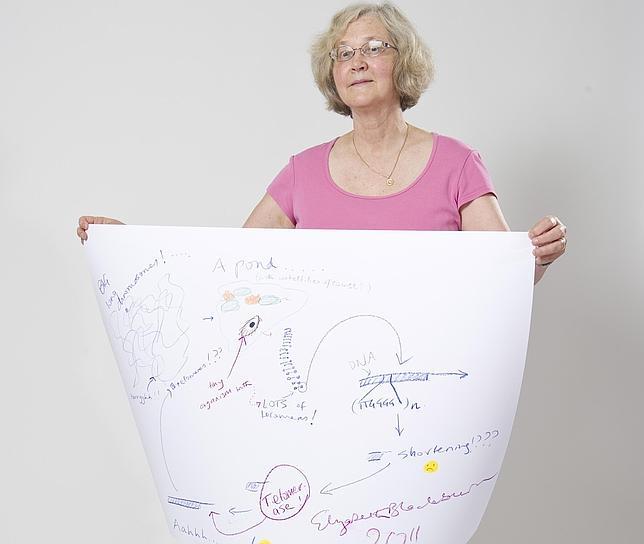 Big
long
chromosomes!....
A pond......
(with satellites of course!)
tiny
organism with
LOTS of
telomeres!
DNA
(TTGGGG)n
shortening!???
Telomer-
ase!
Aahhh....
Elizabeth Blackburn
2011